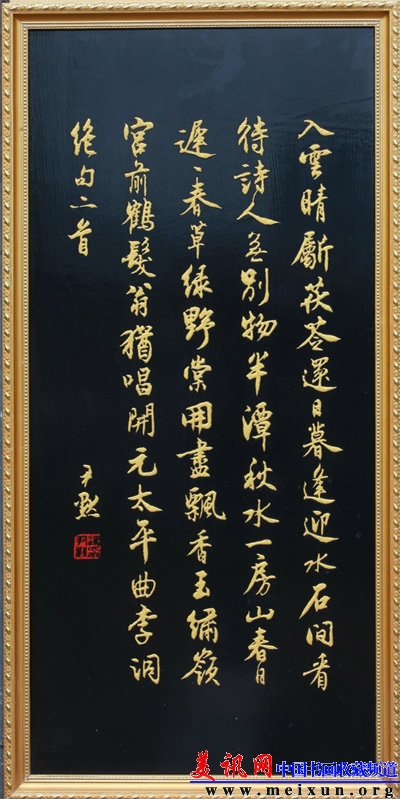 入雲晴斸茯苓還日暮逢迎水石間看
待詩人無別物半潭秋水一房山春日
遲〻春草綠野棠開盡飄香玉繡嶺
宮前鶴髮翁猶唱開元太平曲李洞
絕句二首
尹默
美讯网 中国书画收藏频道
www.meixun.org